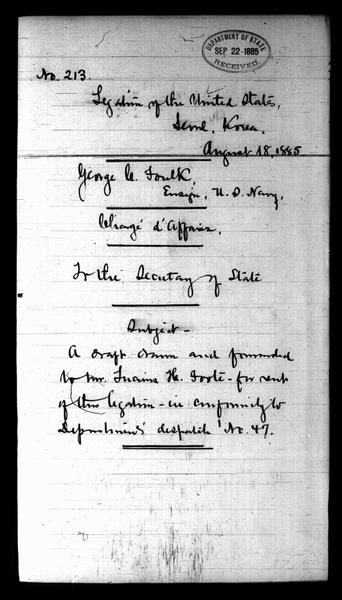 DEPARTMENT OF STATE
SEP 22 1885
RECEIVED.
No. 213.
Legation of the United States,
Seoul, Korea,
August 18, 1885
George C. Foulk
Ensign, U.S. Navy,
Chargé d'Affaires.
To the Secretary of State
Subject-
A draft drawn and forwarded
to Mr. Lucius H. Foote - for rent
of this legation - in conformity to
Department's despatch No. 47.